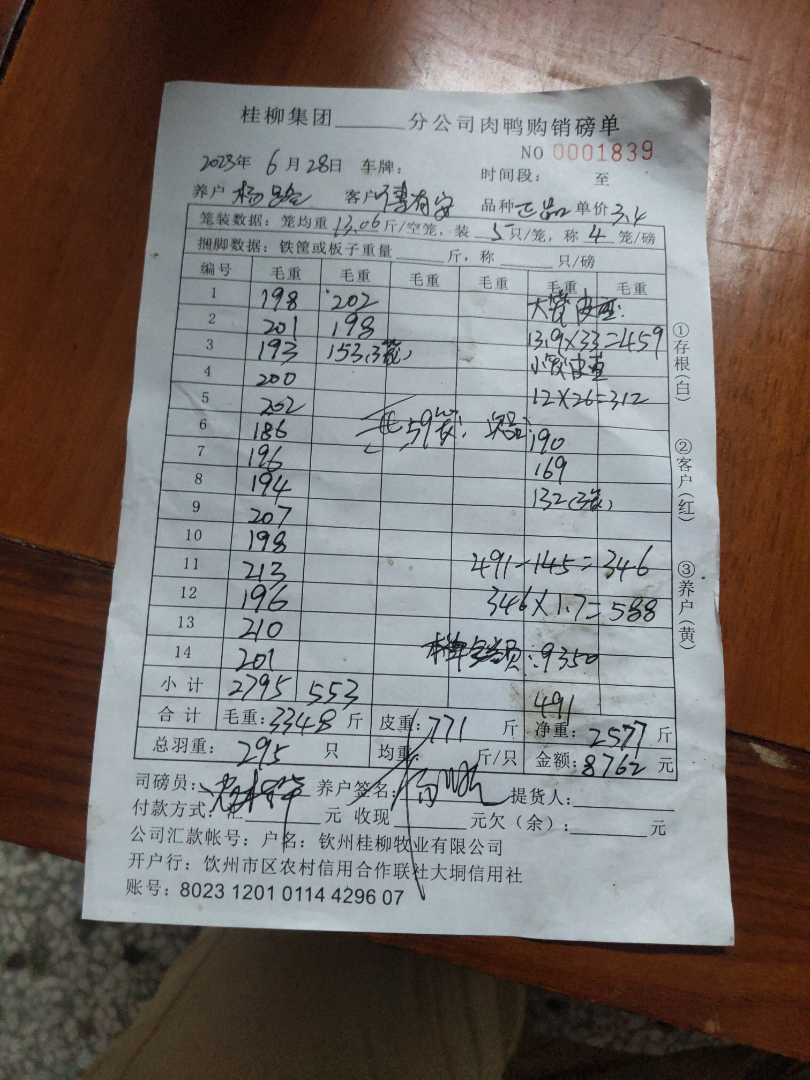 桂柳集团______分公司肉鸭购销磅单
NO 0001839
2023年 6月28日 车牌： 时间段： 至
养户 杨 客户 有安 品种 正品 单价 3.4
笼装数据：笼均重 13.06 斤/空笼，装 5 只/笼，称 4 笼/磅
捆脚数据：铁筐或板子重量______斤，称______只/磅
编号 毛重 毛重 毛重 毛重 毛重 毛重
1 198 202 大笼皮重：
2 201 198 13.9×33=459
3 193 153(3笼) 小笼皮重
4 200 12×26=312
5 202
6 186 59笼 190
7 196 169
8 194 132(3笼)
9 207
10 198
11 213 491-145=346
12 196 346×1.7=588
13 210
14 201 ：9350
小计 2795 553 491
合计 毛重：3348 斤 皮重：771 斤 净重：2577 斤
总羽重：295 只 均重： 斤/只 金额：8762 元
司磅员： 养户签名： 提货人：
付款方式：汇______元 收现______元欠（余）：______元
公司汇款帐号：户名：钦州桂柳牧业有限公司
开户行：钦州市区农村信用合作联社大垌信用社
账号：8023 1201 0114 4296 07
①存根(白)
②客户(红)
③养户(黄)